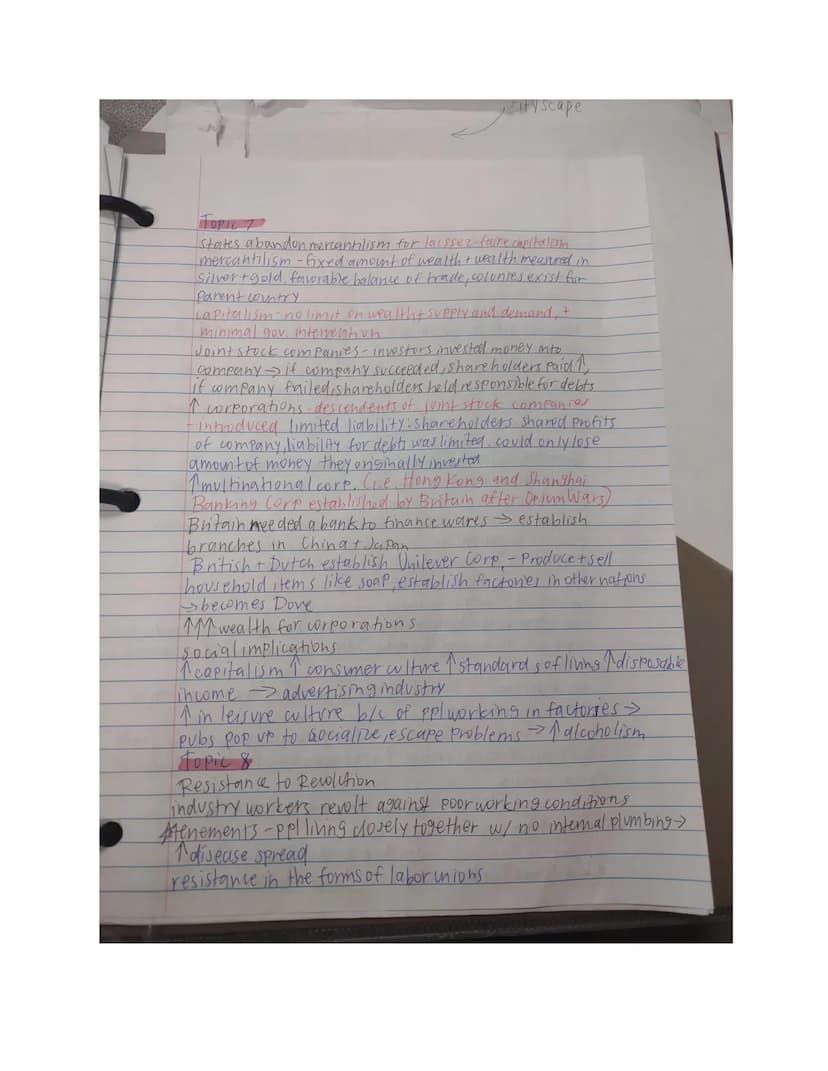 cityscape
Topic 7
States abandon mercantilism for laissez-faire capitalism
mercantilism - fixed amount of wealth + wealth measured in
silver + gold, favorable balance of trade, colonies exist for
parent country
capitalism - no limit on wealth + supply and demand, +
minimal gov. intervention
Joint stock companies - investors invested money into
company → if company succeeded, shareholders paid ↑,
if company failed, shareholders held responsible for debts
↑ corporations - descendents of joint stock companies
- Introduced limited liability: shareholders shared profits
of company, liability for debts was limited. could only lose
amount of money they originally invested
↑ multinational corp. (i.e. Hong Kong and Shanghai
Banking Corp established by Britain after Opium Wars)
Britain needed a bank to finance wares → establish
branches in China + Japan
British + Dutch establish Unilever Corp. - Produce + sell
household items like soap, establish factories in other nations
→ becomes Dove
↑↑↑ wealth for corporations
social implications
↑ capitalism ↑ consumer culture ↑ standards of living ↑ disposable
income → advertising industry
↑ in leisure culture b/c of ppl working in factories →
pubs pop up to socialize, escape problems → ↑ alcoholism
Topic 8
Resistance to Revolution
industry workers revolt against poor working conditions
tenements - ppl living closely together w/ no internal plumbing →
↑ disease spread
resistance in the forms of labor unions